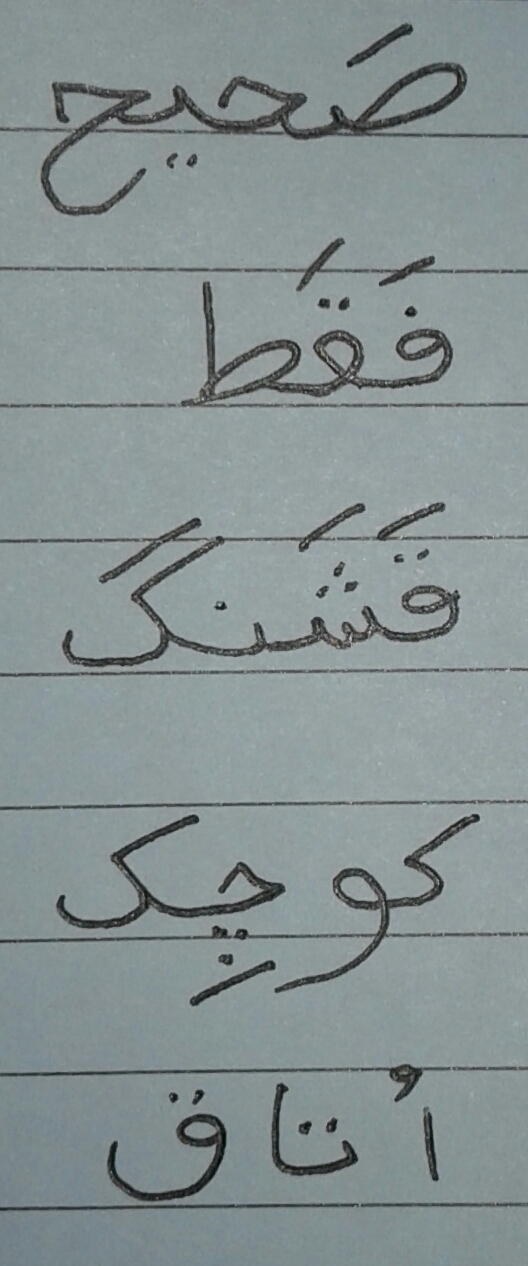 صَحیح
فَقَط
قَشَنگ
کوچِک
اُتاق